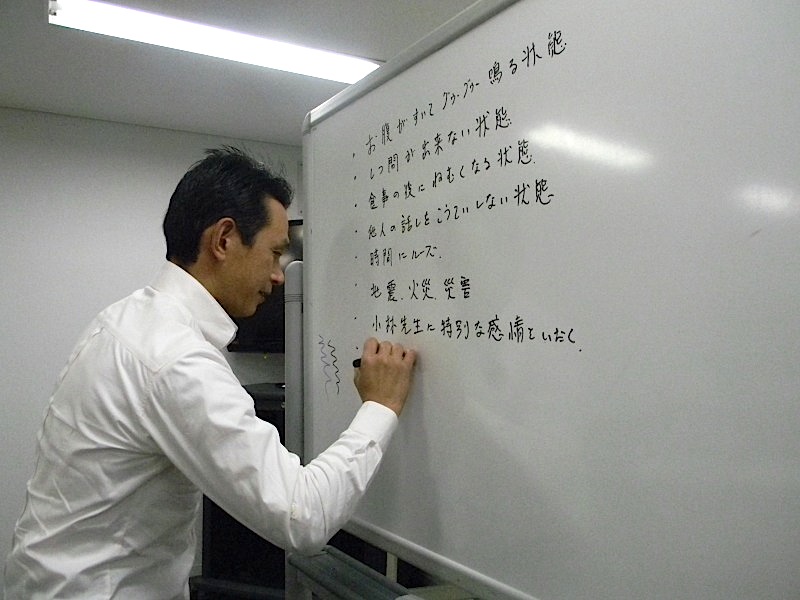 ・お腹がすいてグゥ-グゥー鳴る状態
・しつ問が出来ない状態
・食事の後にねむくなる状態
・他人の話しをこうていしない状態
・時間にルーズ.
・地震、火災、災害
・小林先生に特別な感情をいだく.
・